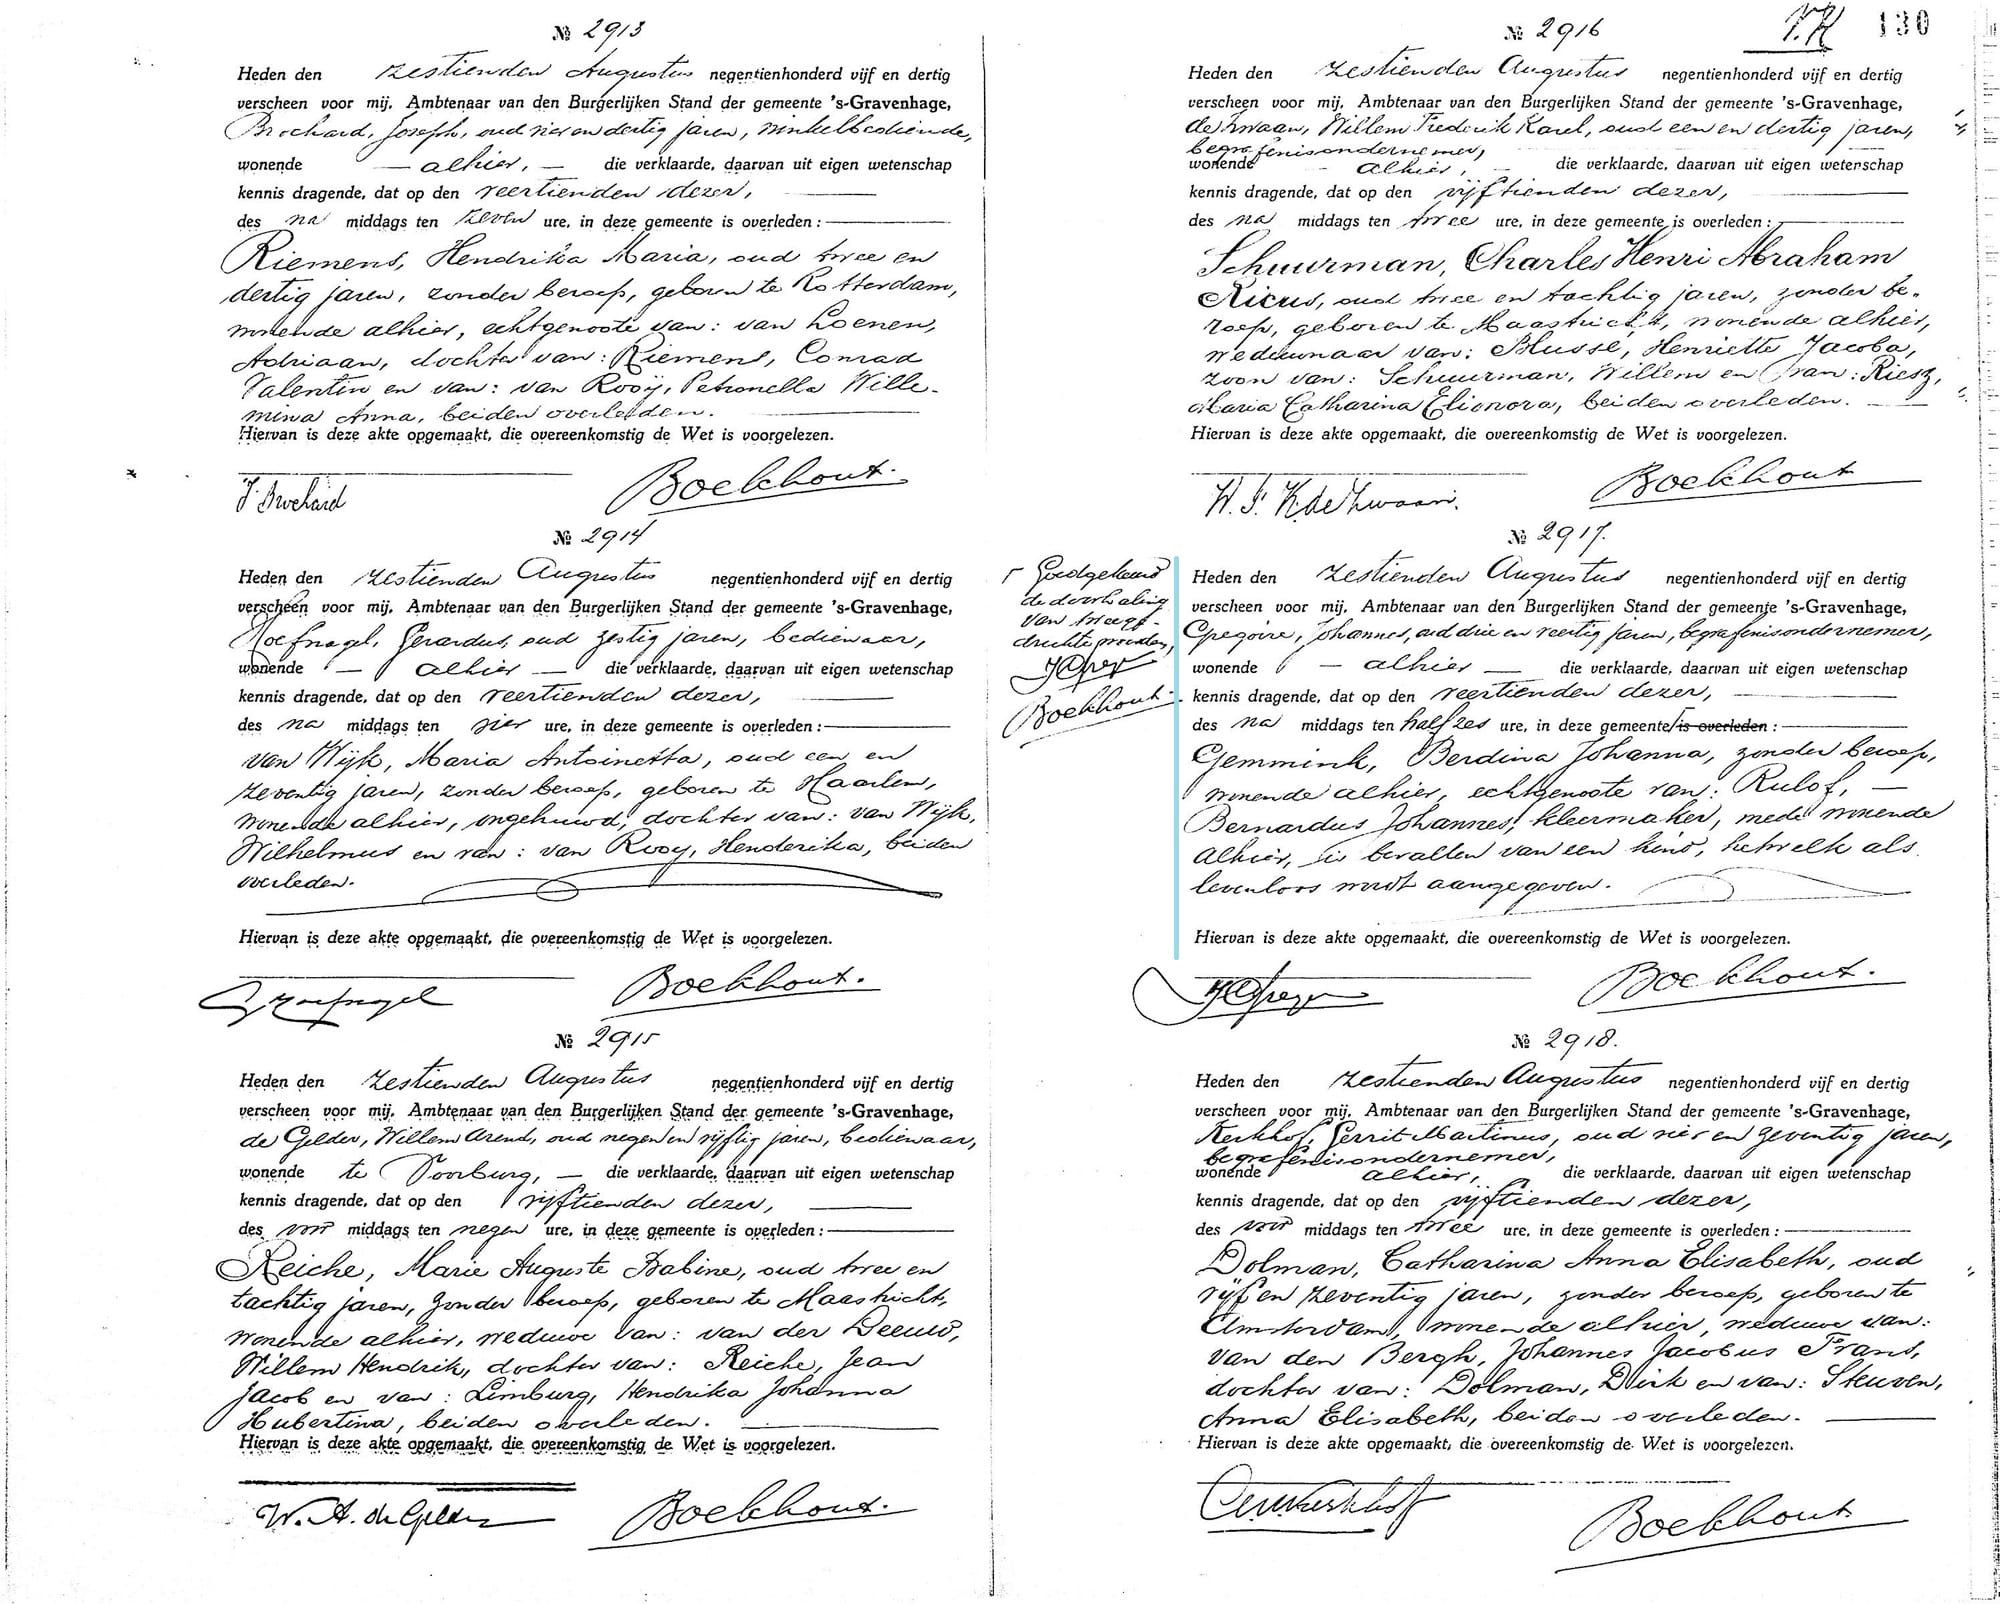 № 2913
Heden den zestienden Augustus negentienhonderd vijf en dertig
verscheen voor mij, Ambtenaar van den Burgerlijken Stand der gemeente 's-Gravenhage,
Brochard, Joseph, oud vier en dertig jaren, winkelbediende,
wonende — alhier, — die verklaarde, daarvan uit eigen wetenschap
kennis dragende, dat op den veertienden dezer,
des na middags ten zeven ure, in deze gemeente is overleden:
Riemens, Hendrika Maria, oud twee en
dertig jaren, zonder beroep, geboren te Rotterdam,
wonende alhier, echtgenoote van: van Loenen,
Adriaan, dochter van: Riemens, Conrad
Valentin en van: van Rooij, Petronella Wille-
mina Anna, beiden overleden.
Hiervan is deze akte opgemaakt, die overeenkomstig de Wet is voorgelezen.
J. Brochard Boekhout.
№ 2914
Heden den zestienden Augustus negentienhonderd vijf en dertig
verscheen voor mij, Ambtenaar van den Burgerlijken Stand der gemeente 's-Gravenhage,
Hoefnagel, Gerardus, oud zestig jaren, bedienaar,
wonende — alhier — die verklaarde, daarvan uit eigen wetenschap
kennis dragende, dat op den veertienden dezer,
des na middags ten vier ure, in deze gemeente is overleden:
van Wijk, Maria Antoinetta, oud een en
zeventig jaren, zonder beroep, geboren te Haarlem,
wonende alhier, ongehuwd, dochter van: van Wijk,
Wilhelmus en van: van Rooy, Henderika, beiden
overleden.
Hiervan is deze akte opgemaakt, die overeenkomstig de Wet is voorgelezen.
G Hoefnagel Boekhout.
№ 2915
Heden den zestienden Augustus negentienhonderd vijf en dertig
verscheen voor mij, Ambtenaar van den Burgerlijken Stand der gemeente 's-Gravenhage,
de Gelder, Willem Arend, oud negen en vijftig jaren, bedienaar,
wonende te Voorburg, — die verklaarde, daarvan uit eigen wetenschap
kennis dragende, dat op den vijftienden dezer,
des voor middags ten negen ure, in deze gemeente is overleden:
Reiche, Marie Auguste Babine, oud twee en
tachtig jaren, zonder beroep, geboren te Maastricht,
wonende alhier, weduwe van: van der Deeuw,
Willem Hendrik, dochter van: Reiche, Jean
Jacob en van: Limburg, Hendrika Johanna
Hubertina, beiden overleden.
Hiervan is deze akte opgemaakt, die overeenkomstig de Wet is voorgelezen.
W. A. de Gelder Boekhout.
130
№ 2916
Heden den zestienden Augustus negentienhonderd vijf en dertig
verscheen voor mij, Ambtenaar van den Burgerlijken Stand der gemeente 's-Gravenhage,
de Zwaan, Willem Frederik Karel, oud een en dertig jaren,
begrafenisondernemer,
wonende alhier, die verklaarde, daarvan uit eigen wetenschap
kennis dragende, dat op den vijftienden dezer,
des na middags ten twee ure, in deze gemeente is overleden:
Schuurman, Charles Henri Abraham
Ricus, oud twee en tachtig jaren, zonder be-
roep, geboren te Maastricht, wonende alhier,
weduwnaar van: Blussé, Henriette Jacoba,
zoon van: Schuurman, Willem en van: Riesz,
Maria Catharina Elionora, beiden overleden.
Hiervan is deze akte opgemaakt, die overeenkomstig de Wet is voorgelezen.
W. F. K. de Zwaan. Boekhout
№ 2917.
Heden den zestienden Augustus negentienhonderd vijf en dertig
verscheen voor mij, Ambtenaar van den Burgerlijken Stand der gemeente 's-Gravenhage,
Gregoire, Johannes, oud drie en veertig jaren, begrafenisondernemer,
wonende — alhier — die verklaarde, daarvan uit eigen wetenschap
kennis dragende, dat op den veertienden dezer,
des na middags ten half zes ure, in deze gemeente is overleden:
Gemmink, Berdina Johanna, zonder beroep,
wonende alhier, echtgenoote van: Rulof, —
Bernardus Johannes, kleermaker, mede wonende
alhier, is bevallen van een kind, hetwelk als
levenloos wordt aangegeven.
Hiervan is deze akte opgemaakt, die overeenkomstig de Wet is voorgelezen.
Boekhout.
Goedgekeurd
de doorhaling
van twee ge-
drukte woorden,
Boekhout.
№ 2918.
Heden den zestienden Augustus negentienhonderd vijf en dertig
verscheen voor mij, Ambtenaar van den Burgerlijken Stand der gemeente 's-Gravenhage,
Kerkhof, Gerrit Martinus, oud vier en zeventig jaren,
begrafenisondernemer,
wonende alhier, die verklaarde, daarvan uit eigen wetenschap
kennis dragende, dat op den vijftienden dezer,
des voor middags ten twee ure, in deze gemeente is overleden:
Dolman, Catharina Anna Elisabeth, oud
vijf en zeventig jaren, zonder beroep, geboren te
Amsterdam, wonende alhier, weduwe van:
van den Bergh, Johannes Jacobus Frans,
dochter van: Dolman, Dirk en van: Steuven,
Anna Elisabeth, beiden overleden.
Hiervan is deze akte opgemaakt, die overeenkomstig de Wet is voorgelezen.
Boekhout